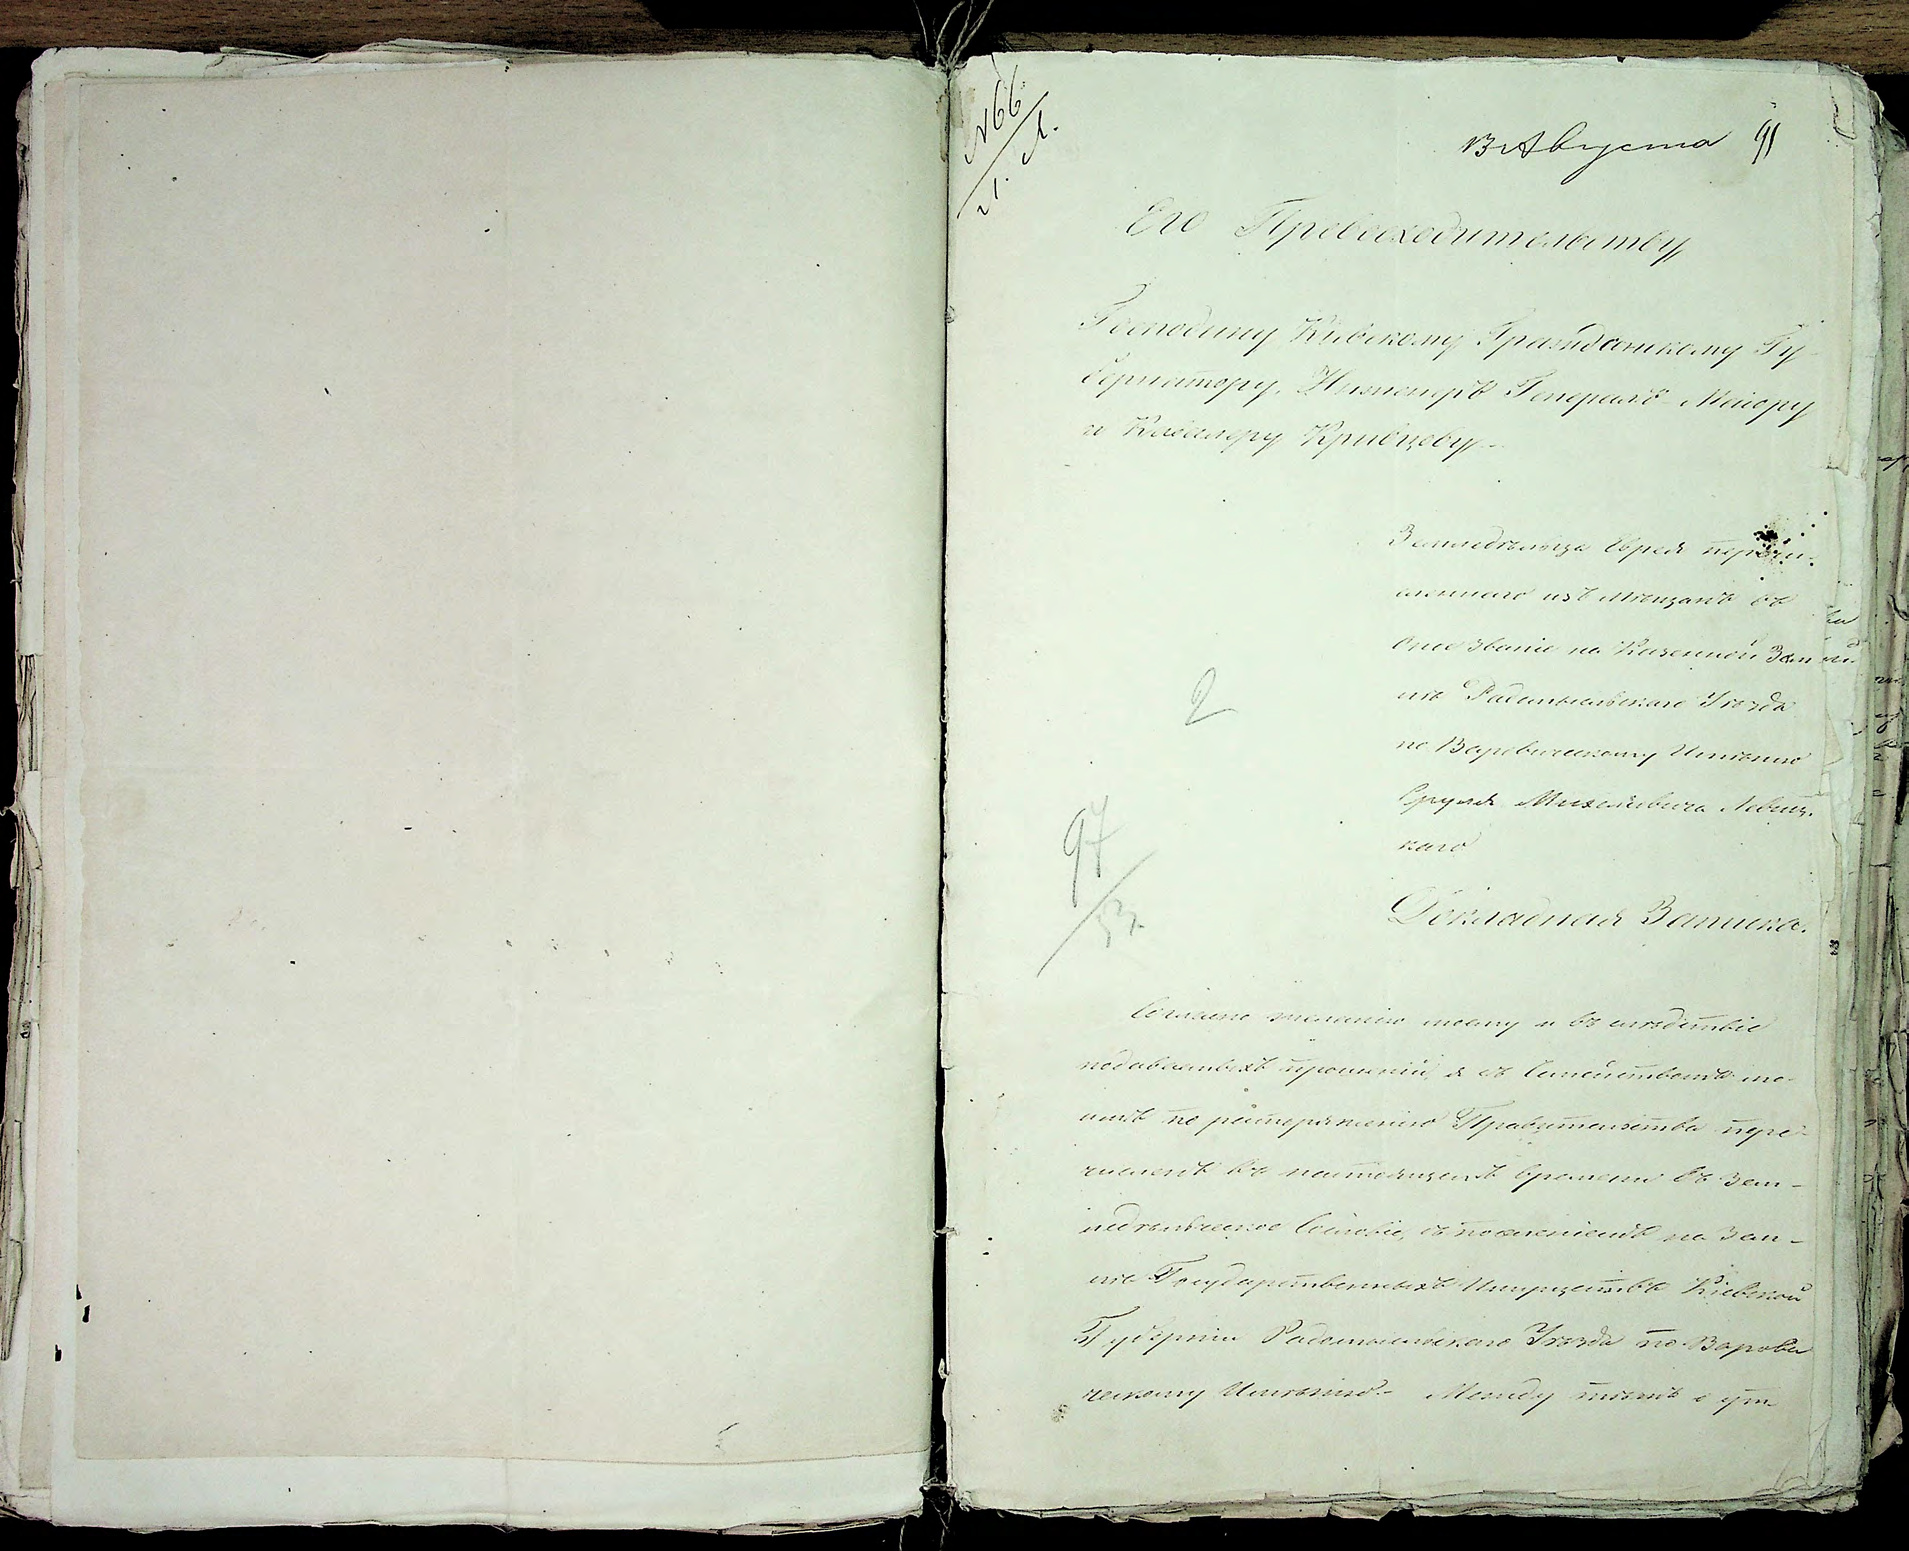 № 66
13 Августа 91
Его Превосходительству
Господину Киевскому Гражданскому Гу-
бернатору, Инженеръ Генералъ-Маіору
и Кавалеру Кривцову
Земледѣльца Еврея перечи-
сленнаго изъ мѣщанъ въ
оное званіе на Казенной Зем
лѣ Радомысльскаго Уѣзда
по Варовическому Имѣнію
Сруля Михелевича Левиц-
каго
2
97
53
Докладная Записка.
Согласно желанію моему и въ слѣдствіе
подаваемыхъ прошеній, я съ Семействомъ мо-
имъ по распоряженію Правительства пере-
численъ въ настоящемъ времени въ Зем-
ледѣльческое Сословіе, съ поселеніемъ на Зем-
лѣ Государственныхъ Имуществъ Кіевской
Губерніи Радомысльскаго Уѣзда по Варови
ческому Имѣнію.- Между тѣмъ